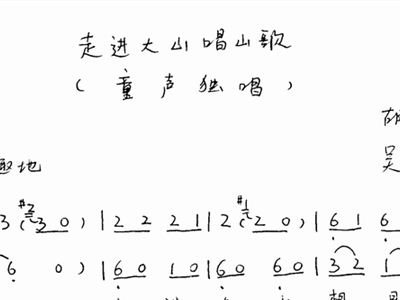 走进大山唱山歌
(童声独唱)
胡
吴
趣地
3 (#2 3 0) | 2 2 2 1 | 2 (#1 2 0) | 6 1 6
6 0) | 6 0 1 0 | 6 0 6 0 | 3 2 1
想